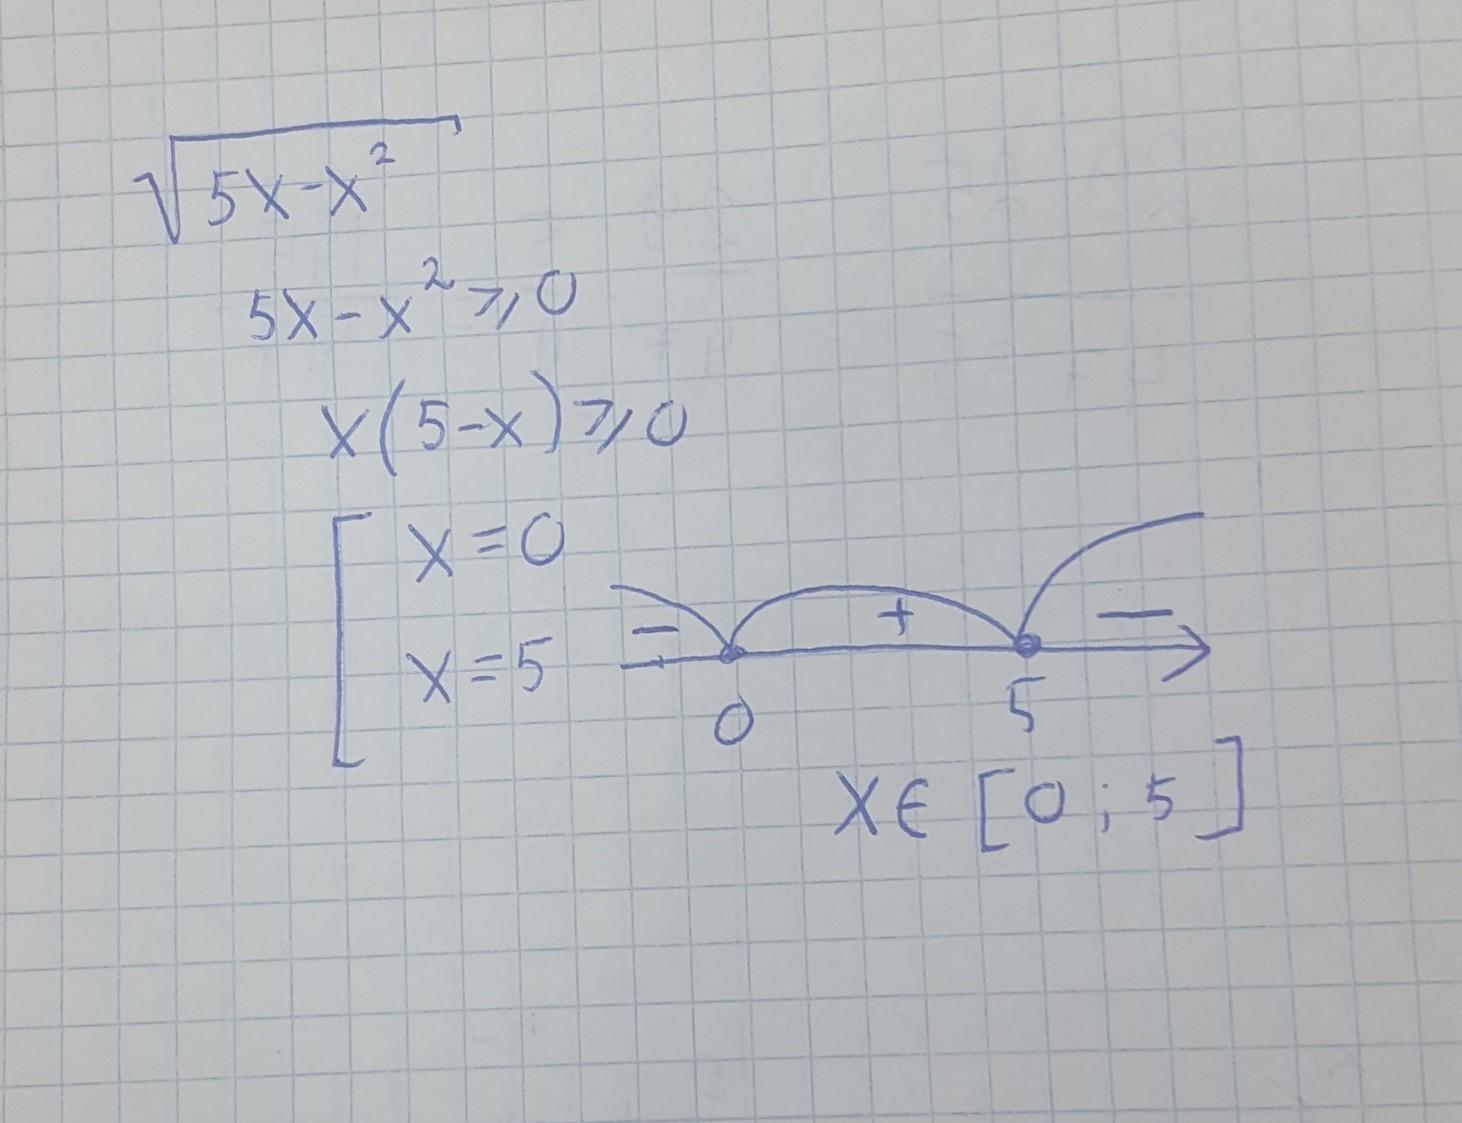 √(5x-x²)
5x-x²⩾0
x(5-x)⩾0
[ x=0
x=5
- + -
0 5
x∈[0;5]